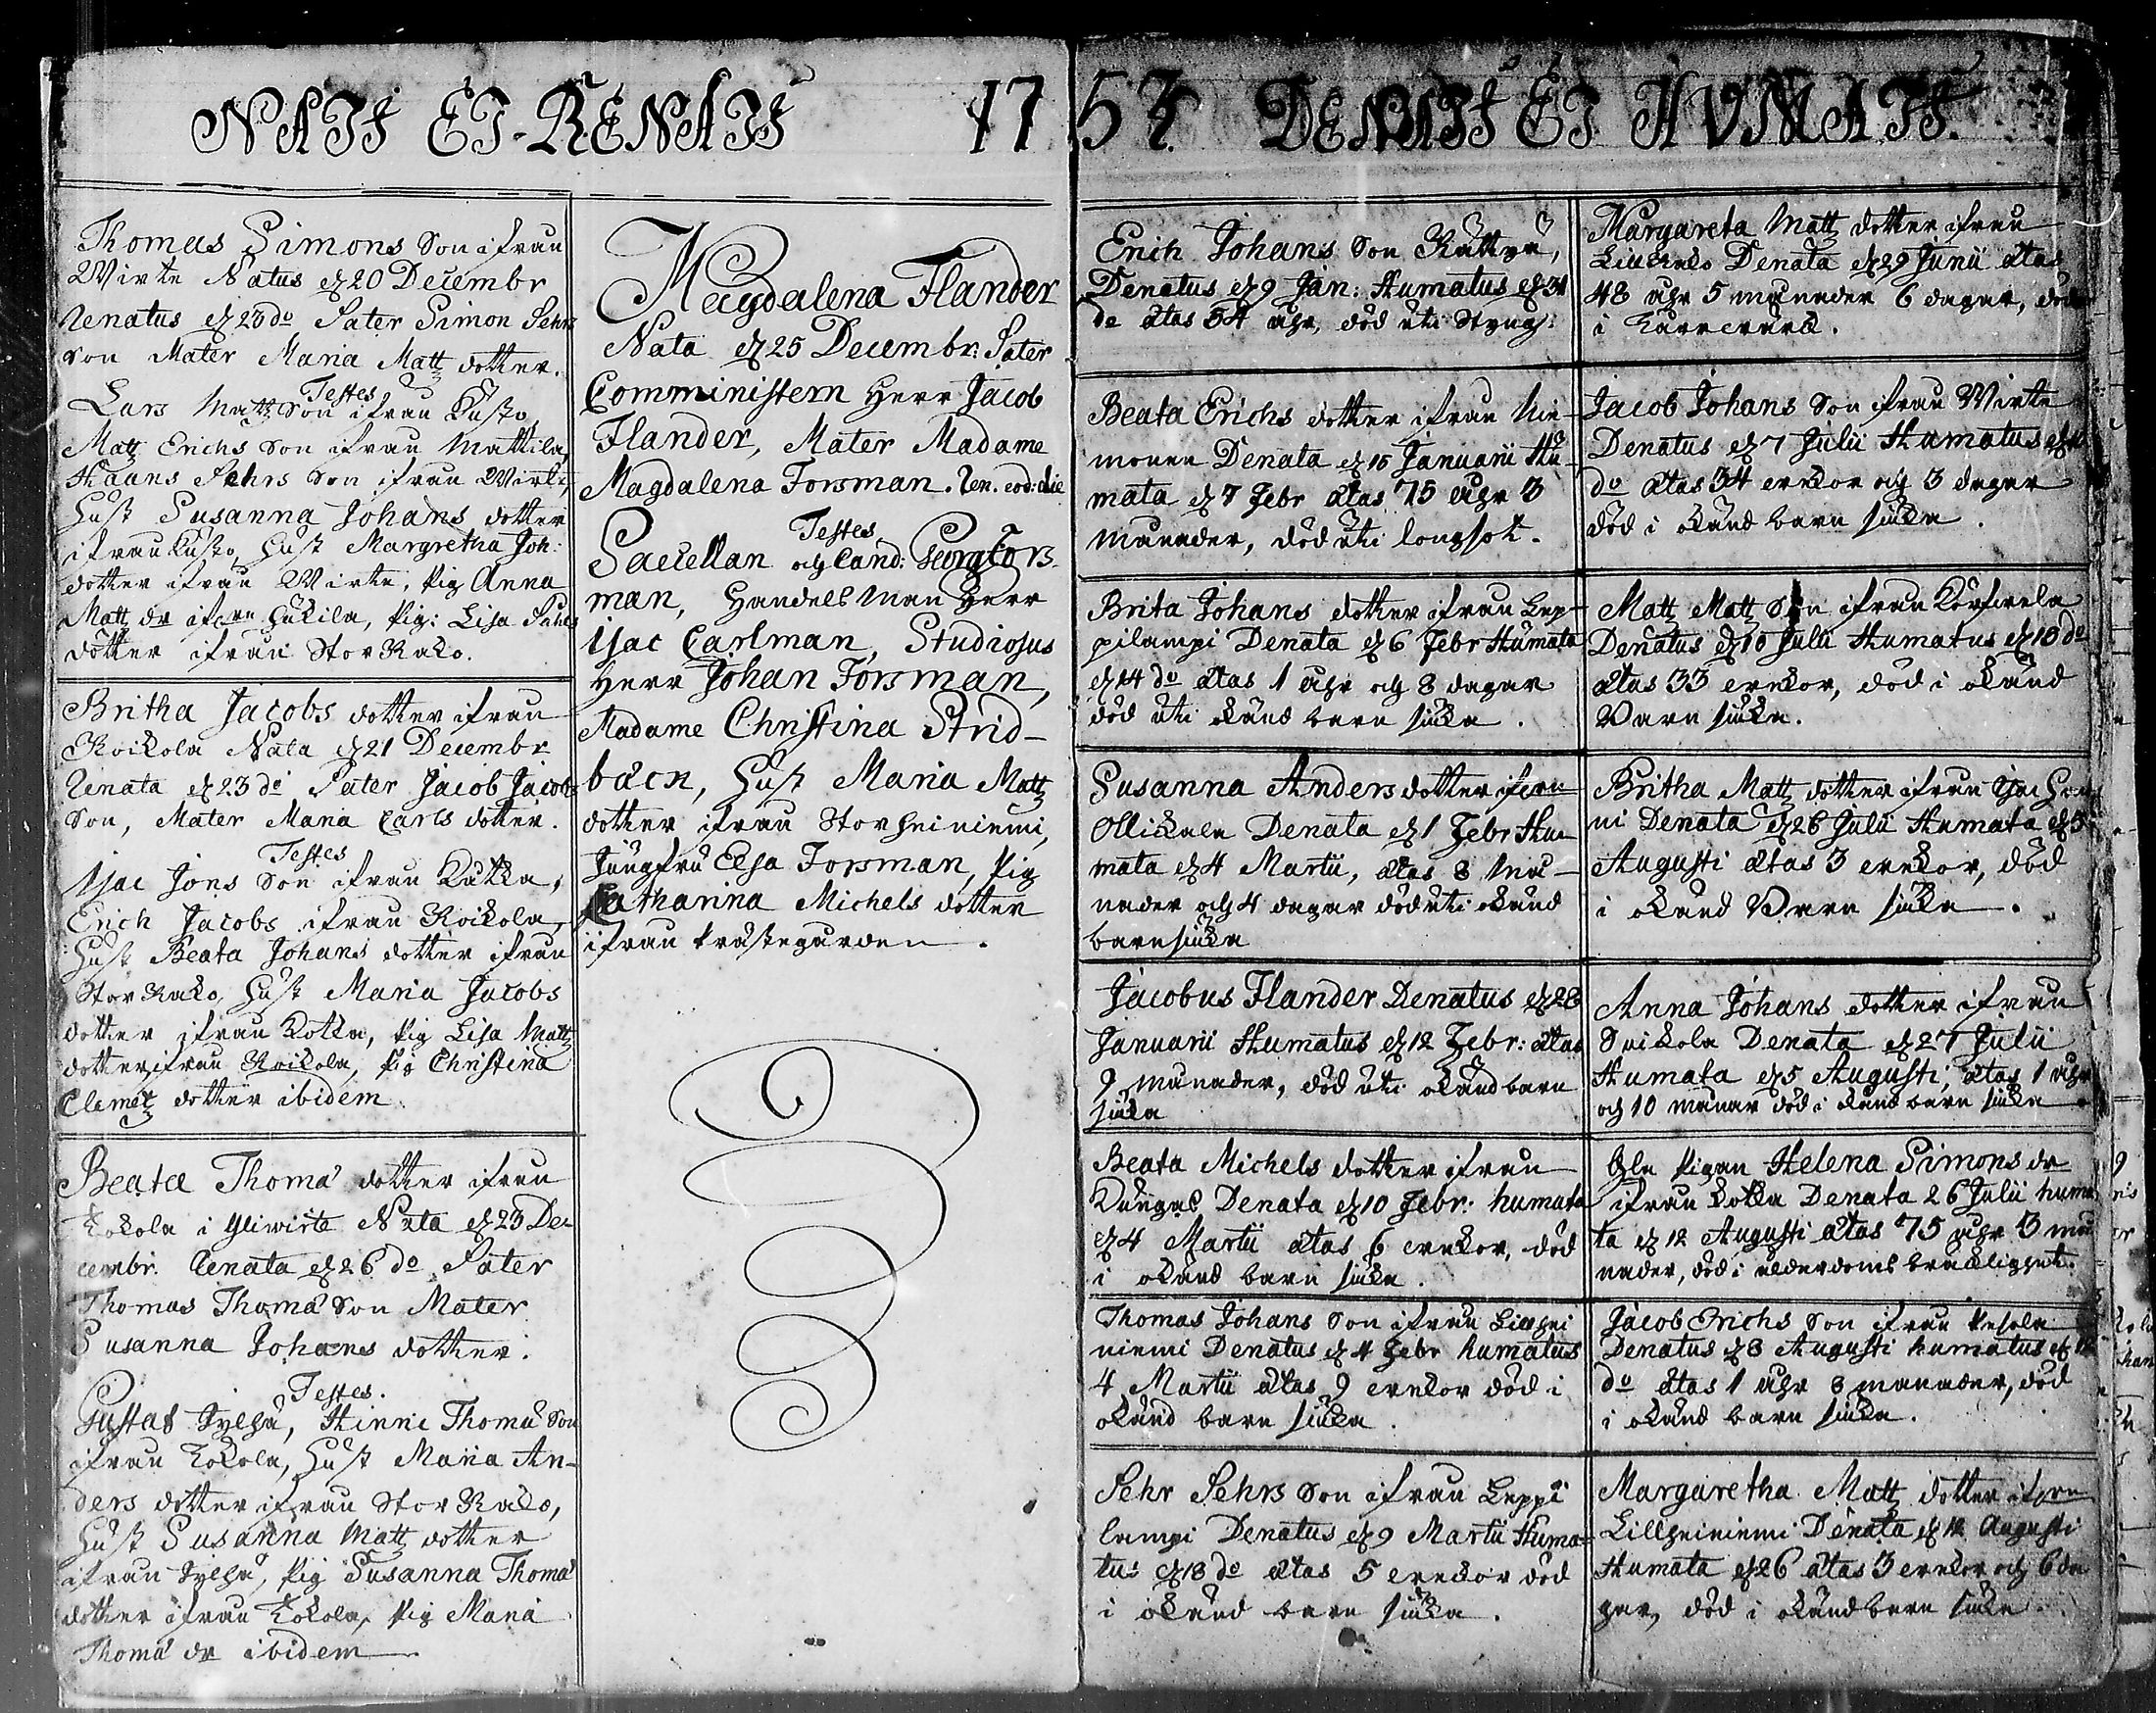 NATI ET RENATI 1753 DENATI ET HUMATI.
Thomas Simons Son ifrån
Wirte Natus d 20 Decembr
Renatus d 23 do Pater Simon Pehrs
son Mater Maria Matz dotter.
Testes
Lars Matz Son ifrån Kusko,
Matz Erichs Son ifrån Mattila,
Haans Pehrs Son ifrån Wirte,
Hust Susanna Johans dotter
ifrån Kusko, Hust Margretha Joh:
dotter ifrån Wirte, Pig Anna
Matz dr ifrån Hukila, Pig: Lisa Pehrs
dotter ifrån Stor Kako.
Britha Jacobs dotter ifrån
Koikola Nata d 21 Decembr
Renata d 23 do Pater Jacob Jacobs
Son, Mater Maria Carls dotter.
Testes
Isac Jöns Son ifrån Kutka,
Erich Jacobs ifrån Koikola,
Hust Beata Johans dotter ifrån
Stor Kako, Hust Maria Jacobs
dotter ifrån Kotka, Pig Lisa Matz
dotter ifrån Koikola, Pig Christina
Clemetz dotter ibidem.
Beata Thomæ dotter ifrån
Kokola i Yliwirte Nata d 23 De-
cembr. Renata d 26 do Pater
Thomas Thomæ Son Mater
Susanna Johans dotter.
Testes.
Gustaf Sylhä, Hinric Thomæ Son
ifrån Kokola, Hust Maria An-
ders dotter ifrån Stor Kako,
Hust Susanna Matz dotter
ifrån Sylhä, Pig Susanna Thomæ
dotter ifrån Kokola, Pig Maria
Thomæ dr ibidem
Magdalena Flander
Nata d 25 Decembr: Pater
Comministern Herr Jacob
Flander, Mater Madame
Magdalena Forsman. Ren. eod: die
Testes
Sacellan och Cand: Georg Fors-
man, Handels Man Herr
Isac Carlman, Studiosus
Herr Johan Forsman,
Madame Christina Strid-
bäcn, Hust Maria Matz
dotter ifrån Storheiniemi,
Jungfru Elsa Forsman, Pig
Catharina Michels dotter
ifrån Prästegården.
Erich Johans Son Rättyä,
Denatus d 9 Jan: Humatus d 31
de ætas 54 åhr, död uti Styng:
Beata Erichs dotter ifrån Nie-
monen Denata d 15 Januarii Hu-
mata d 7 Febr ætas 75 åhr 3
månader, död uti longsot.
Brita Johans dotter ifrån Lep-
pilampi Denata d 6 Febr Humata
d 14 do ætas 1 åhr och 8 dagar
död uti okänd barn siuka.
Susanna Anders dotter ifrån
Ollikala Denata d 1 Febr Hu-
mata d 4 Martii, ætas 8 Må-
nader och 4 dagar död uti okänd
barnsiuka
Jacobus Flander Denatus d 28
Januarii Humatus d 12 Febr: ætas
9 månader, död uti okänd barn
siuka
Beata Michels dotter ifrån
Kungas Denata d 10 Febr: humata
d 4 Martii ætas 6 weckor, död
i okänd barn siuka.
Thomas Johans Son ifrån Lillhei
niemi Denatus d 4 Febr humatus
4 Martii ætas 9 weckor död i
okänd barn siuka.
Pehr Pehrs Son ifrån Leppi
lampi Denatus d 9 Martii Huma-
tus d 18 do ætas 5 weckor död
i okänd barn siuka.
Margareta Matz dotter ifrån
Lill Kako Denata d 29 Junii ætas
48 åhr 5 månader 6 dagar, död
i
Jacob Johans Son ifrån Wirte
Denatus d 7 Julii Humatus
do ætas 34 weckor och 3 dagar
död i okänd barn siuka.
Matz Matz Son ifrån Korfwela
Denatus d 10 Julii Humatus d 18 do
ætas 33 weckor, död i okänd
Barn siuka.
Britha Matz dotter ifrån
ni Denata d 26 Julii Humata d 5
Augusti ætas 3 weckor, död
i okänd Barn siuka.
Anna Johans dotter ifrån
Suikola Denata d 27 Julii
Humata d 5 Augusti, ætas 1 åhr
och 10 månar död i okänd barn siuka
Gla Pigan Helena Simons dr
ifrån Kotka Denata 26 Julii huma
ta d 12 Augusti ætas 75 åhr 3 må
nader, död i ålderdoms bräcklighet.
Jacob Erichs Son ifrån Pesola
Denatus d 8 Augusti humatus d 12
do ætas 1 åhr 8 månader, död
i okänd barn siuka.
Margaretha Matz dotter ifrån
Lillheiniemi Denata d 12 Augusti
Humata d 26 ætas 3 weckor och 6 da
gar, död i okänd barn siuka.